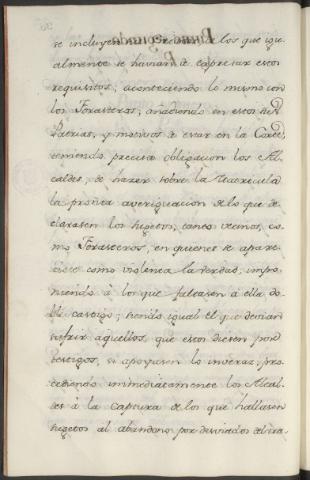 se incluyen
de los que igu-
almente se havian de expresar estos
requisitos; aconteciendo lo mismo con
los Forasteros, añadiendo en estos sus
Patrias, y motivos de estar en la Corte,
teniendo precisa obligacion los Al-
caldes, de hazer sobre la Matricula
la prolixa averiguacion de lo que de-
clarasen los sugetos, tanto vecinos, co-
mo Forasteros, en quienes se apare-
ciese como violenta la verdad, impo-
niendo à los que faltasen à ella do-
ble castigo; siendo igual el que devian
sufrir aquellos, que estos diesen por
testigos, si apoyasen lo inveraz; pro-
cediendo immediatamente los Alcal-
des à la Captura de los que hallasen
sugetos al abandono por desviados de